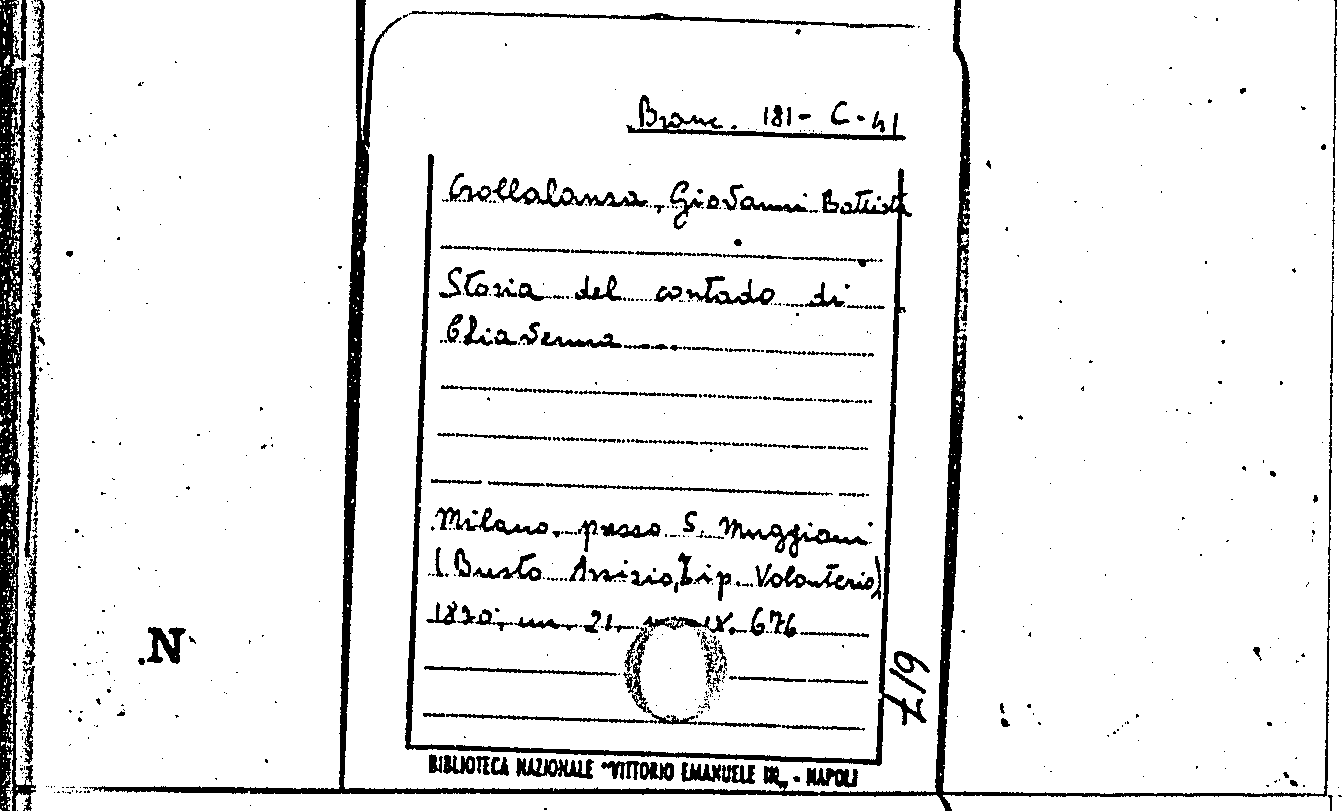 Branc. 181 - C - 41
Crollalanza, Giovanni Battista
Storia del contado di
Chiavenna ...
Milano, presso S. Muggiani
(Busto Arsizio, Tip. Volonterio)
1870, in. 21. IX. 676
617
.N
BIBLIOTECA NAZIONALE "VITTORIO EMANUELE III„ - NAPOLI